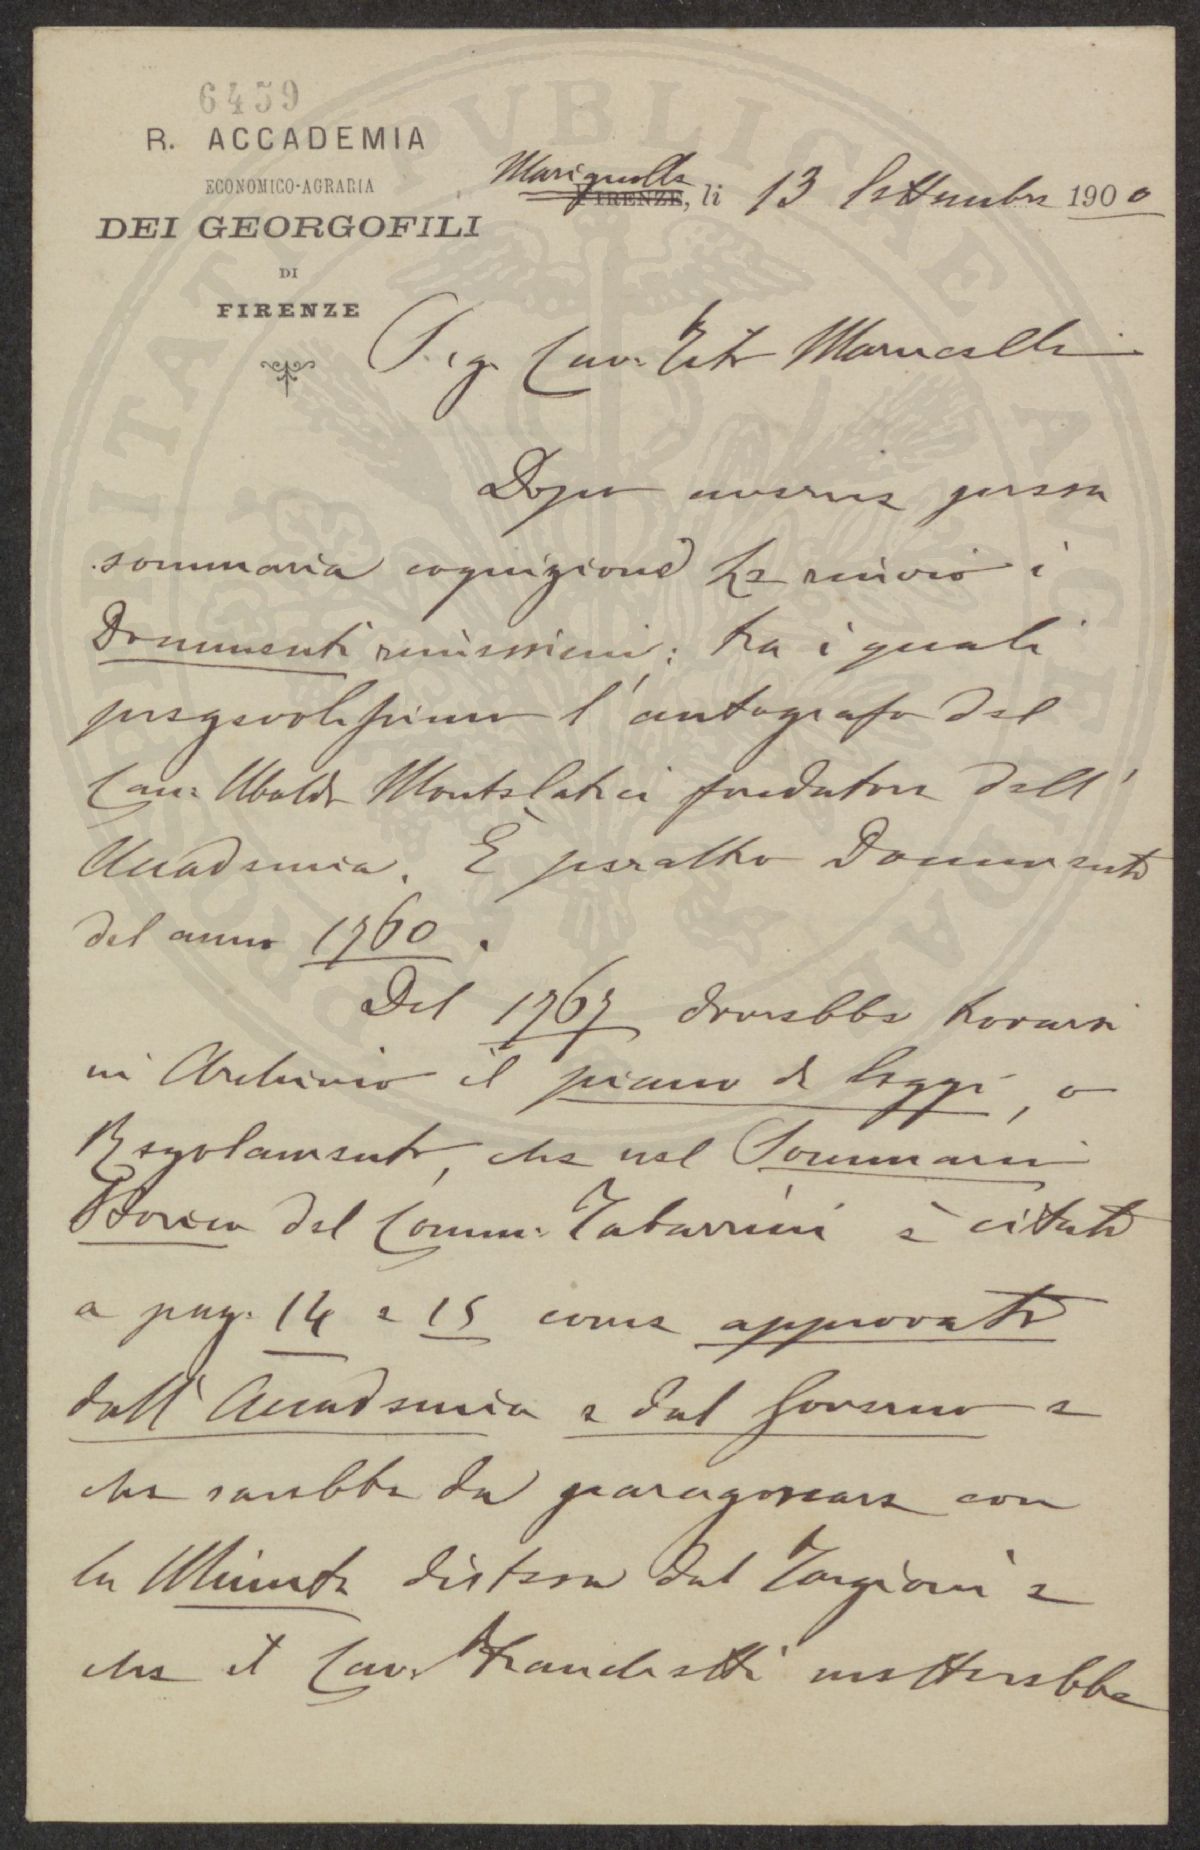 6459
R. ACCADEMIA
ECONOMICO-AGRARIA
DEI GEORGOFILI
DI
FIRENZE
Marignolle
FIRENZE, li 13 Settembre 1900
Sig. Cav. Tito Marucelli
Dopo averne presa
sommaria cognizione Le rinvio i
Documenti rimessimi; tra i quali
pregevolissimo l'autografo del
Can: Ubaldo Montelatici fondatore dell'
Accademia. È peraltro Documento
del anno 1760.
Del 1767 dovrebbe trovarsi
in Archivio il piano di leggi, o
Regolamento, che nel Sommario
Storico del Comm: Tabarrini è citato
a pag. 14 e 15 come approvato
dall'Accademia e dal Governo e
che sarebbe da paragonare con
la Minuta distesa dal Targioni e
che il Cav. Franchetti metterebbe
PROSPERITATI PVBLICAE AVGENDAE